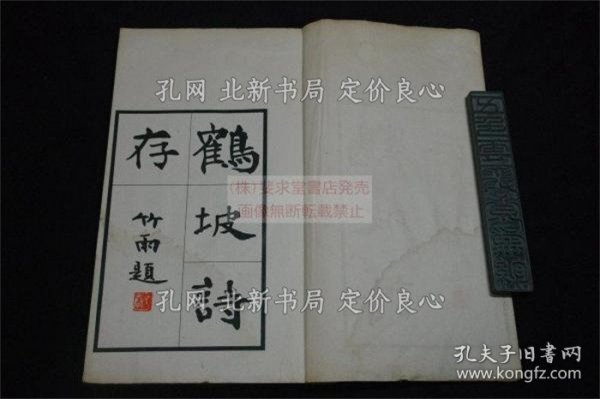 孔网 北新书局 定价良心
鶴坡詩
存
竹雨題
(株)斐求堂書店発売
画像無断転載禁止
孔网 北新书局 定价良心
孔网 北新书局 定价良心
孔夫子旧书网
www.kongfz.com